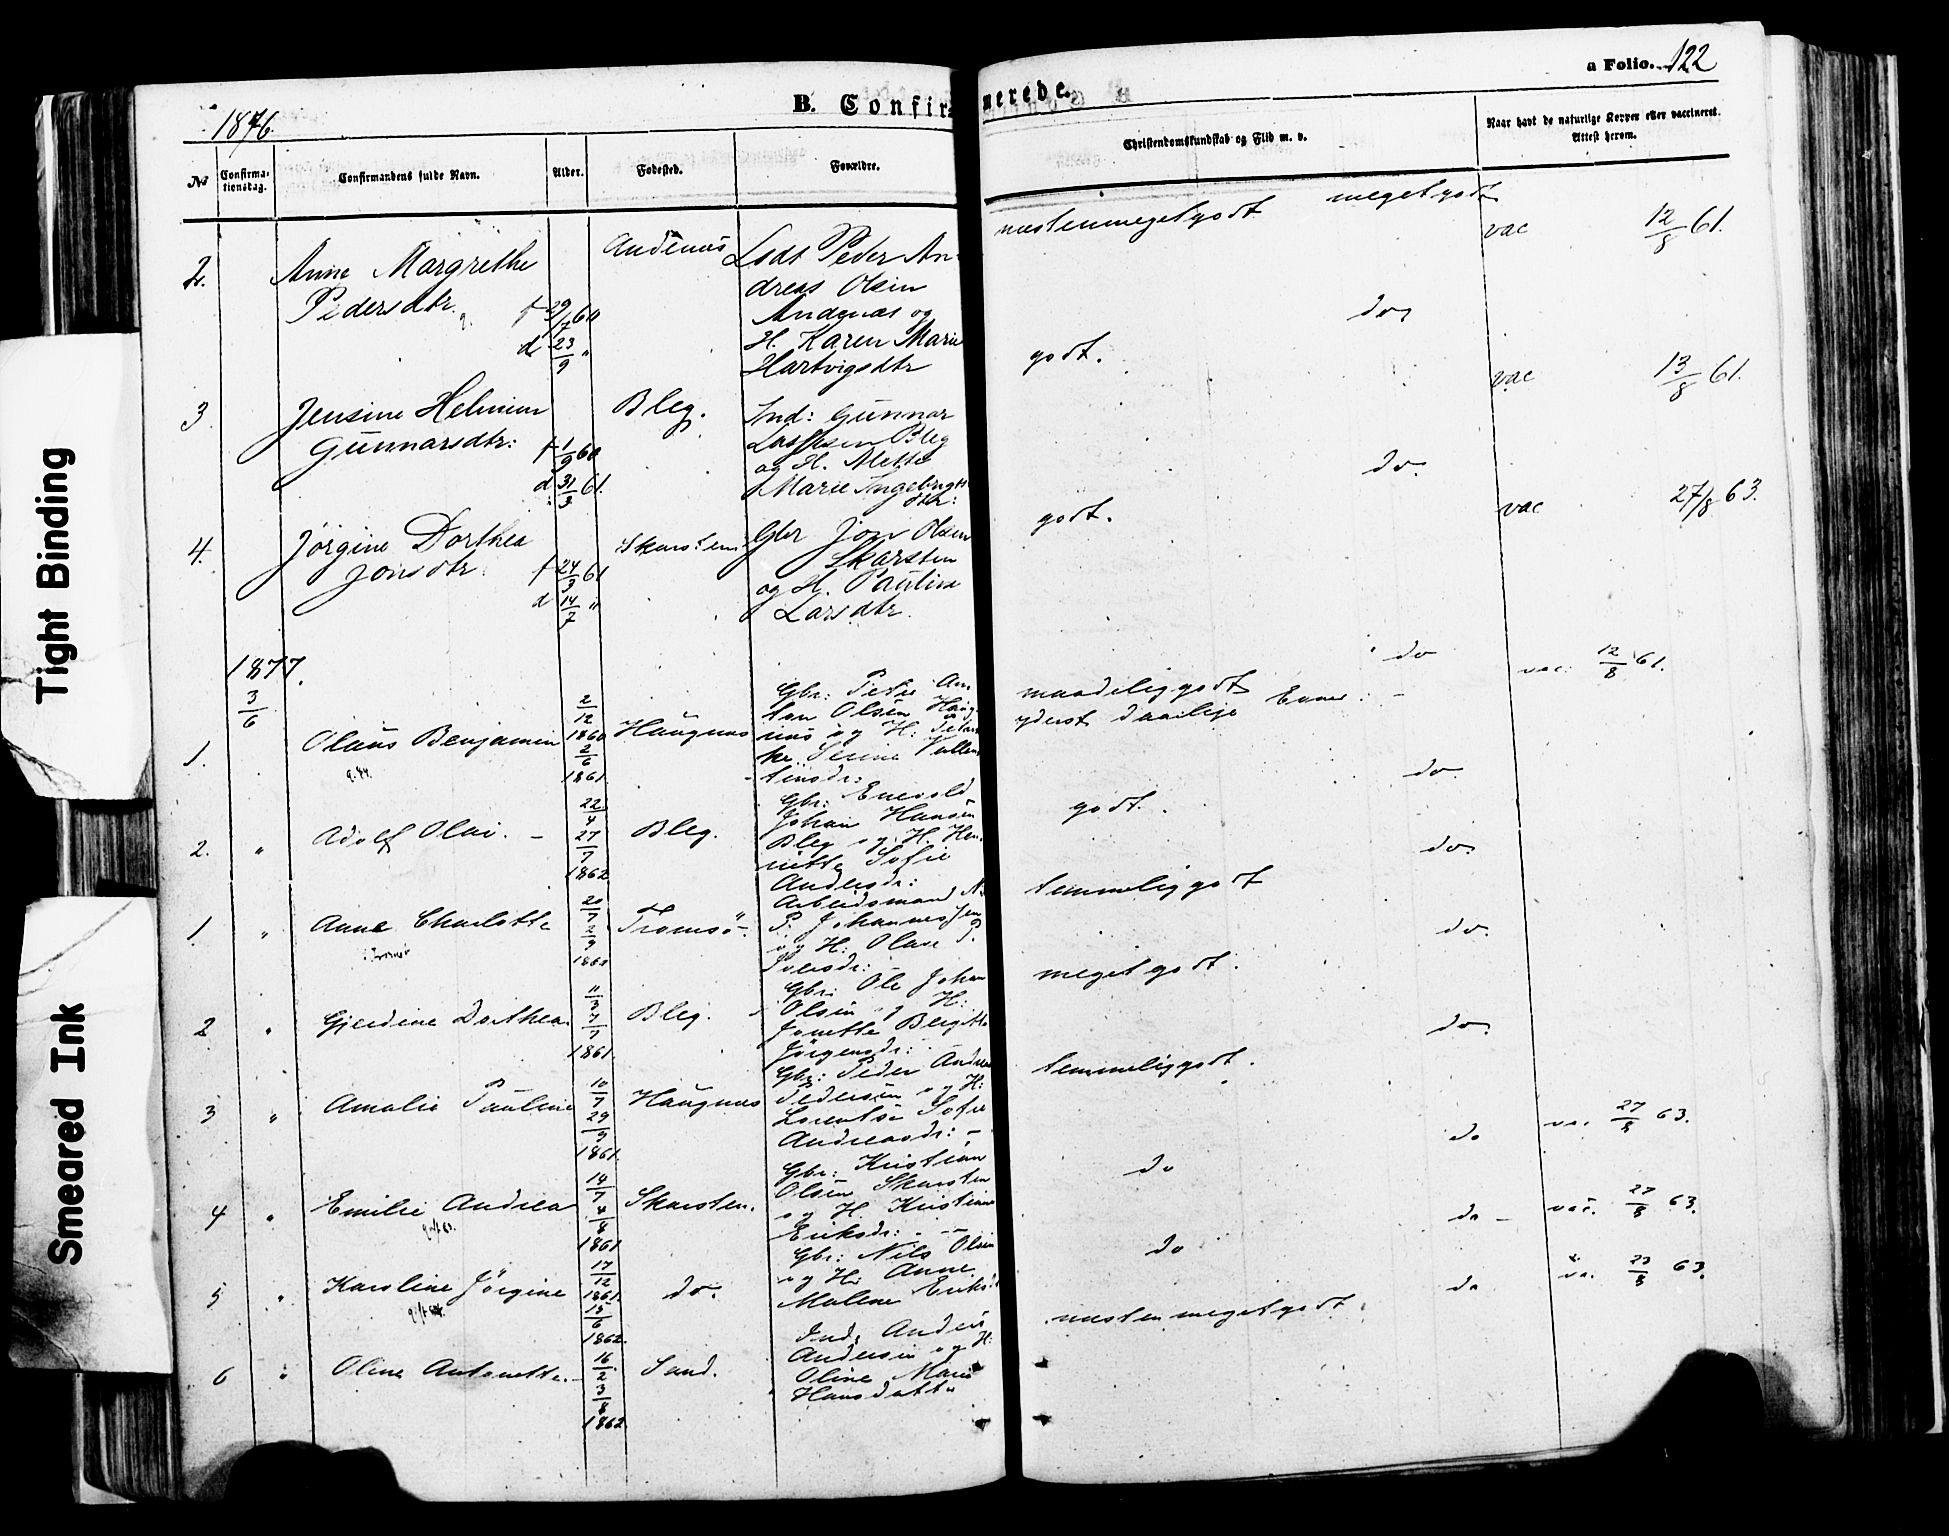 Tight Binding
Smeared Ink
a Folio. 122
1876.
B. Confirmerede.
No
Confirmationsdag.
Confirmandens fulde Navn.
Alder.
Fødested.
Forældre.
Christendomskundskab og Flid m. v.
Naar havt de naturlige Kopper eller vaccineret.
Attest herom.
2.
Anne Margrethe
Pedersdtr.
f 29/7 60
d 23/9 "
Andenæs
Peder An-
dreas Olsen
Andenæs og
H. Karen Marie
Hartvigsdtr
næstenmegetgodt megetgodt
vac 12/8 61.
3.
Jensine Helmine
Gunnarsdtr:
f 1/9 60
d 31/3 61.
Bleg.
Ind: Gunnar
Bleg
og H. Mette
Marie Ingebrigts
dtr:
godt. do,
vac 13/8 61.
4.
Jørgine Dorthea
Jonsdtr.
f 24/3 61
d 14/7 "
Skarsten
Gbr Jon Olsen
Skarsten
og H. Pauline
Larsdtr.
godt. do.
vac 27/8 63.
1877.
3/6
1.
Olaus Benjamin
2/12
1860
2/6
1861.
Haugnæs
Gbr: Peter An
ton Olsen Haug
næs og H:
Serine
tinsdr:
maadeliggodt do
yderst daarlige Evner.
vac: 12/8 61.
2. "
Adolf Olai. -
22/4
27/7
1862
Bleg.
Gbr: Enevold
Johan Hansen
Bleg og H. Hen
riette Sofie
Andersdr:
godt. do.
1. "
Anne Charlotte
20/7
2/9
1860
Tromsö.
Arbeidsmand N.
P. Johannessen
og H: Olave P.
temmeliggodt do.
2 "
Gjerdine Dorthea.
11/3
7/7
1861.
Bleg.
Gbr: Ole Johan
Olsen og H:
Jonette Bergitte
Jörgensdr:
meget godt. do.
3 "
Amalie Pauline
10/7
29/9
1861.
Haugnæs
Gbr: Peder Andreas
Pedersen og H:
Lorentse Sofie
Andreasdr: -
temmeliggodt. do.
4 "
Emilie Andrea
14/7
4/8
1861.
Skarsten.
Gbr: Kristian
Olsen Skarsten
og H. Kristiane
Eriksdr: -
do do
vac. 27/8 63.
5 "
Karoline Jörgine
17/12
1861.
15/6
1862.
do.
Gbr: Nils Olsen
og H: Anne
Malene Eriksd
do do -
vac. 27/8 63.
6 "
Oline Antonette. -
16/2
3/8
1862.
Sand.
Ind: Anders
Andersen og H:
Oline Marie
Hansdatter
næsten megetgodt. do
va. 23/8 63.